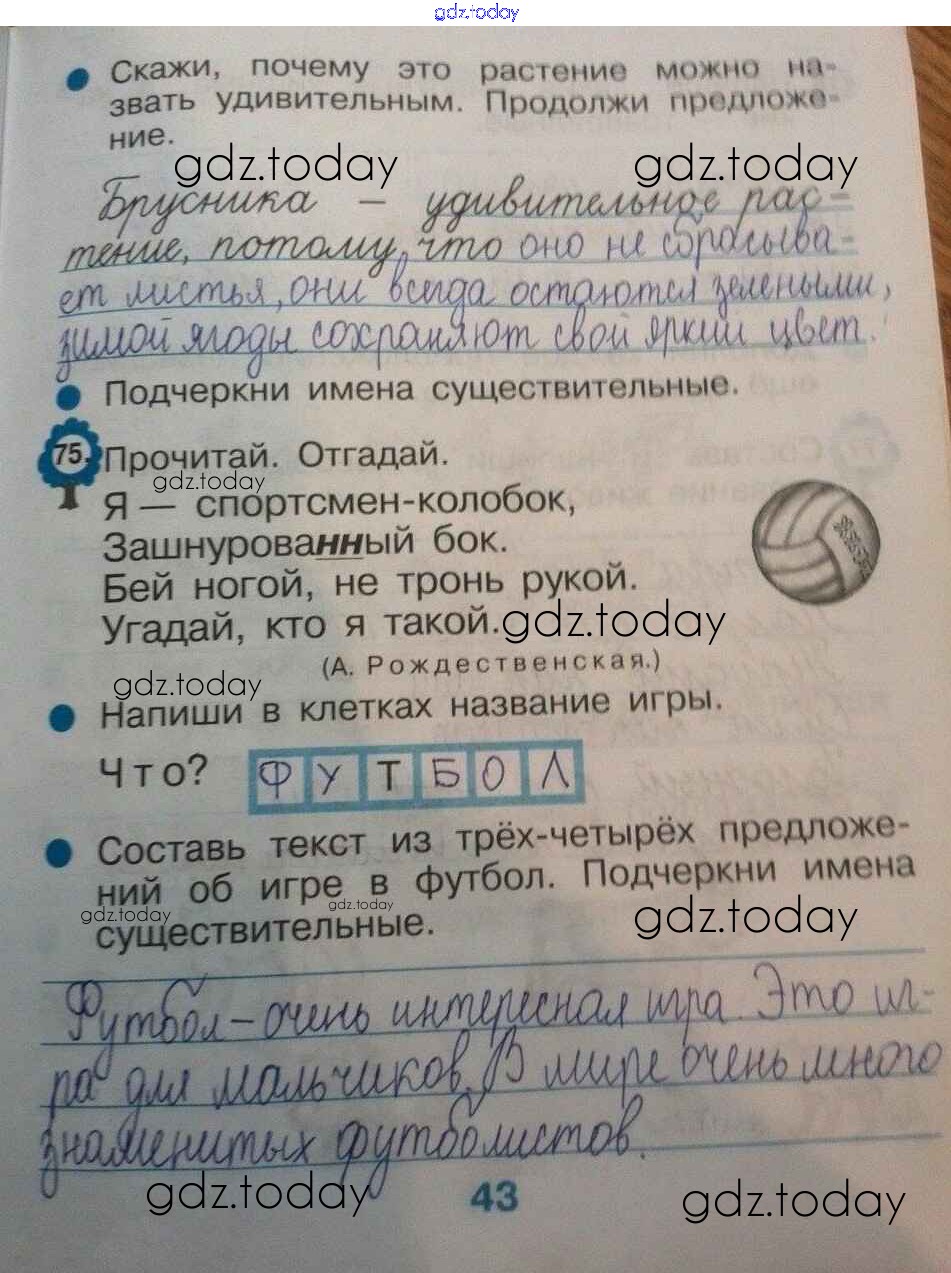 gdz.today
Скажи, почему это растение можно на-
звать удивительным. Продолжи предложе-
ние.
gdz.today gdz.today
Брусника – удивительное рас-
тение, потому что оно не сбрасыва-
ет листья, они всегда остаются зелеными,
зимой ягоды сохраняют свой яркий цвет.
Подчеркни имена существительные.
75. Прочитай. Отгадай.
gdz.today
Я — спортсмен-колобок,
Зашнурованный бок.
Бей ногой, не тронь рукой.
Угадай, кто я такой.
gdz.today
(А. Рождественская.)
gdz.today
Напиши в клетках название игры.
Что? ФУТБОЛ
Составь текст из трёх-четырёх предложе-
ний об игре в футбол. Подчеркни имена
gdz.today gdz.today gdz.today
существительные.
Футбол – очень интересная игра. Это иг-
ра для мальчиков. В мире очень много
знаменитых футболистов.
gdz.today 43 gdz.today